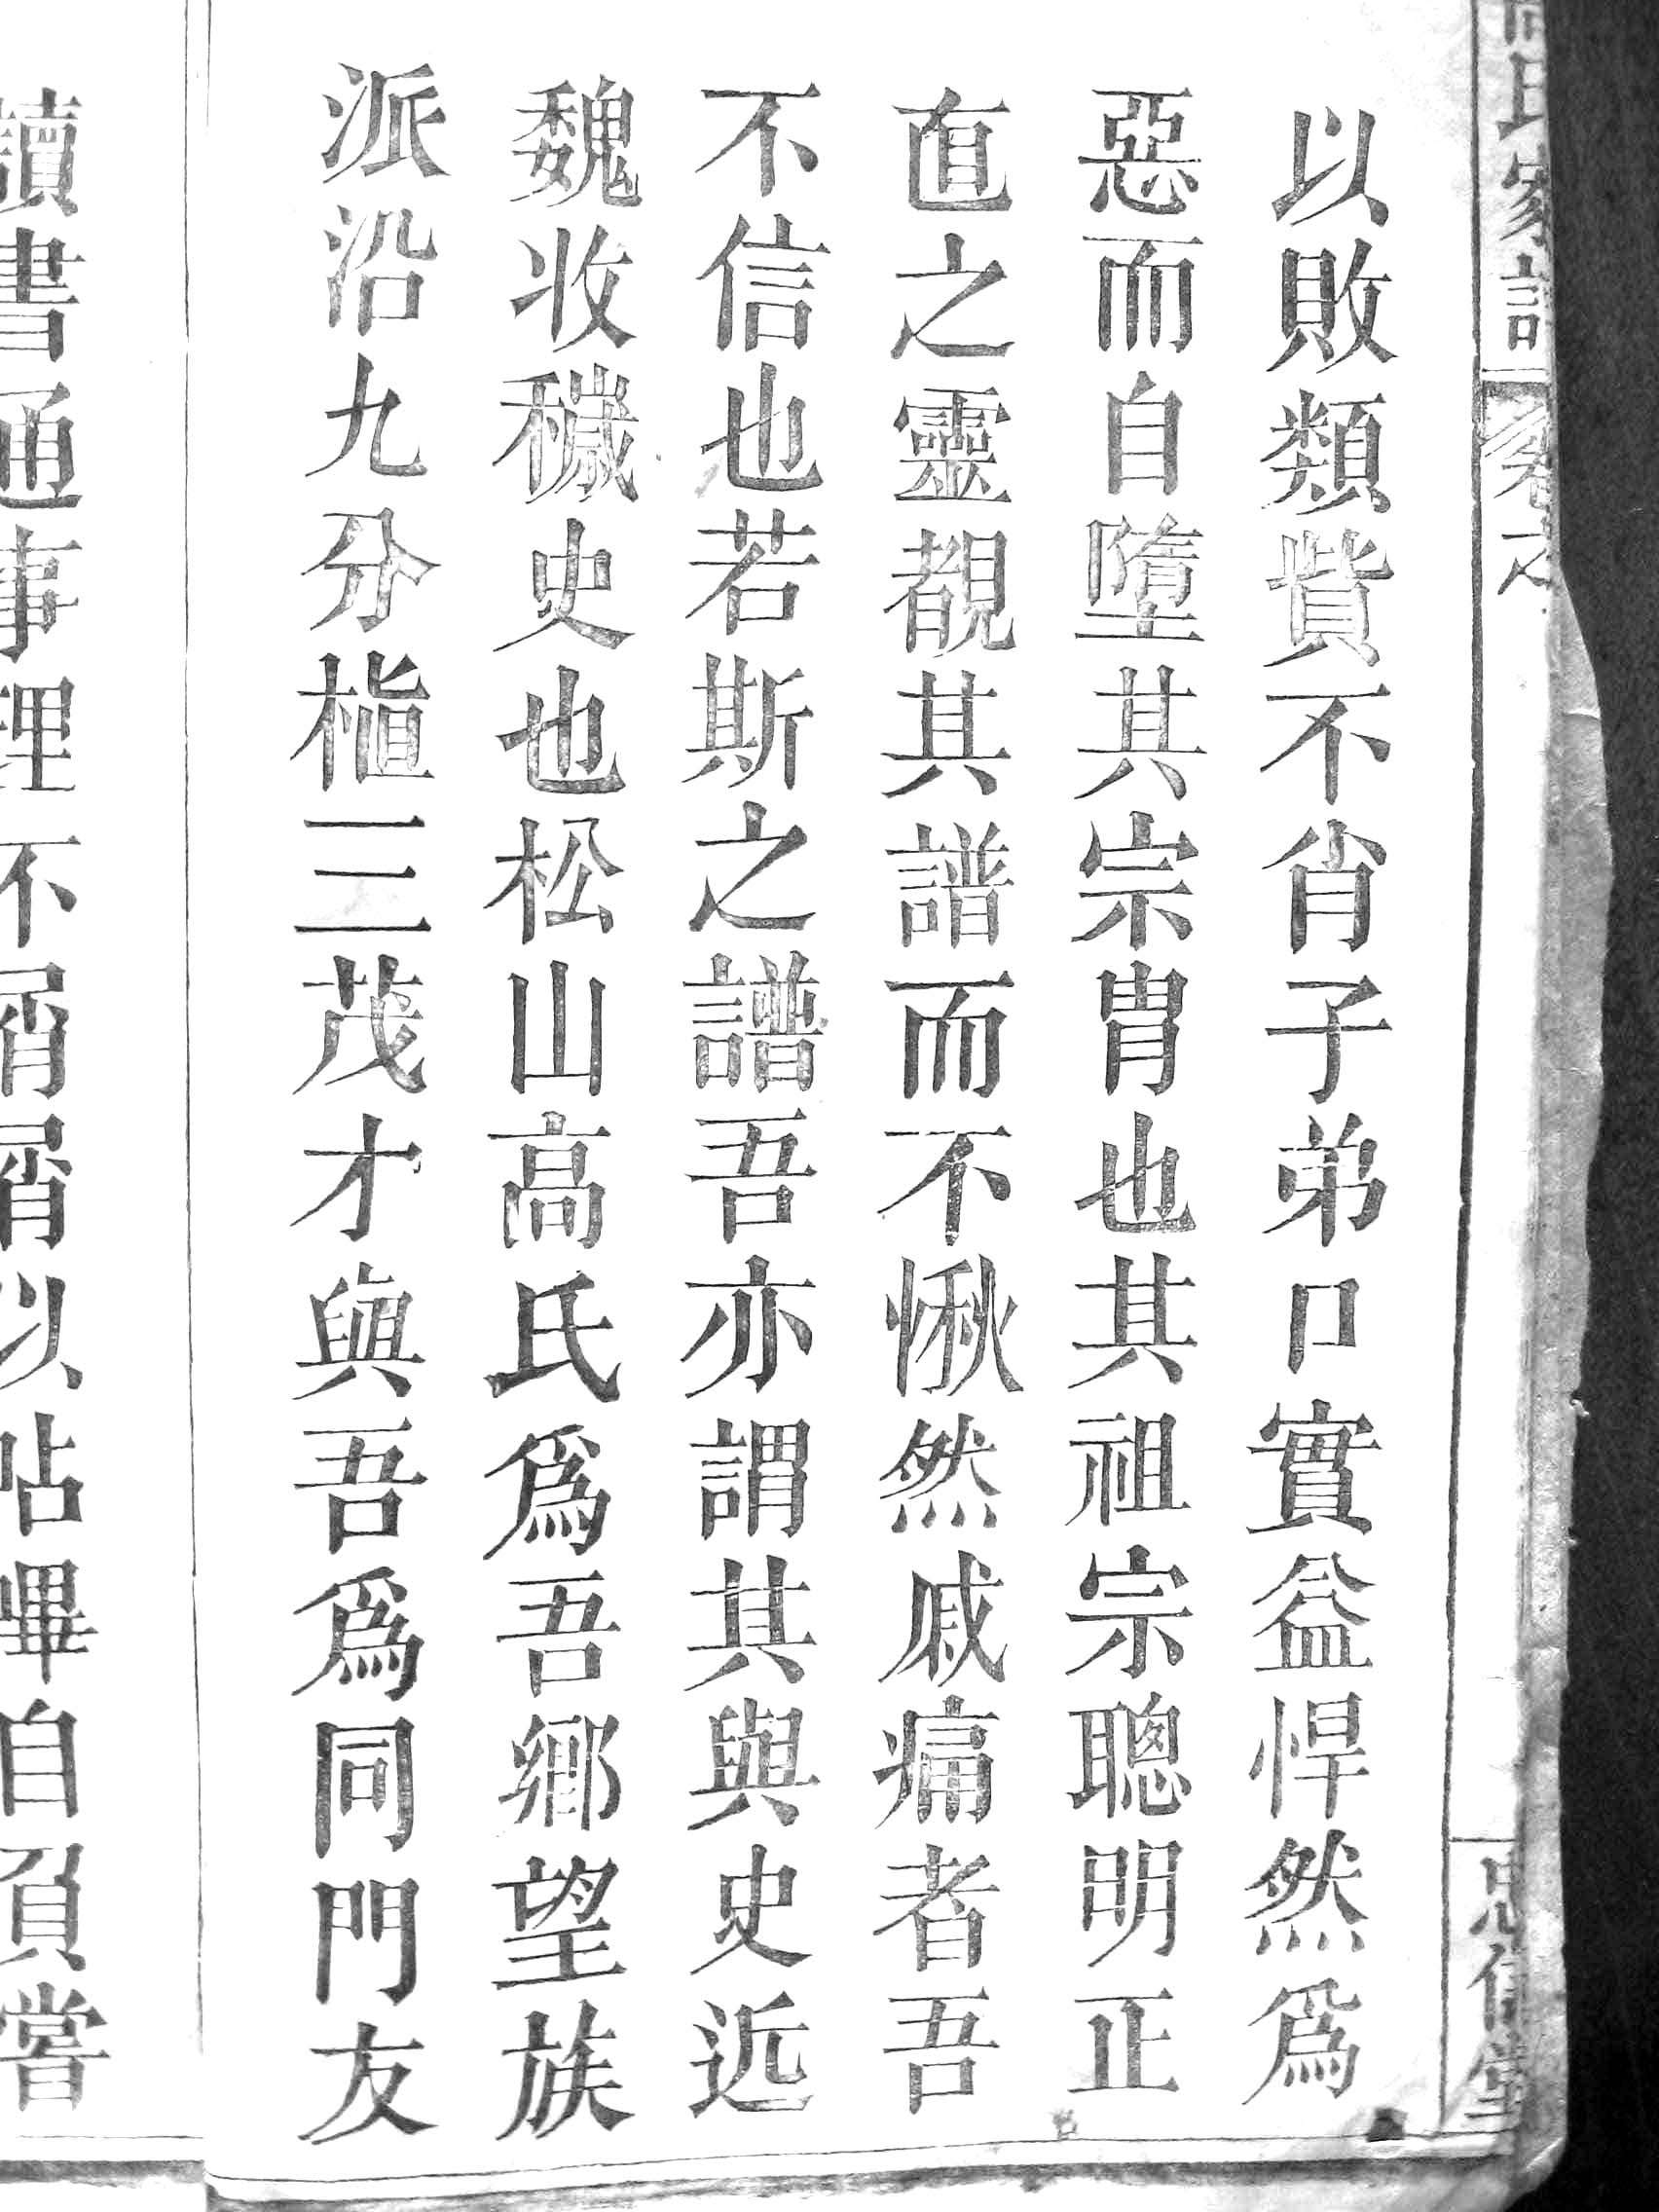 氏家譜
卷之
忠信堂
以敗類貲不肖子弟口實益悍然爲
惡而自墮其宗胄也其祖宗聰明正
直之靈覩其譜而不愀然戚痛者吾
不信也若斯之譜吾亦謂其與史近
魏收穢史也松山高氏爲吾鄉望族
派沿九分植三茂才與吾爲同門友
讀書通事理不屑屑以佔畢自負嘗